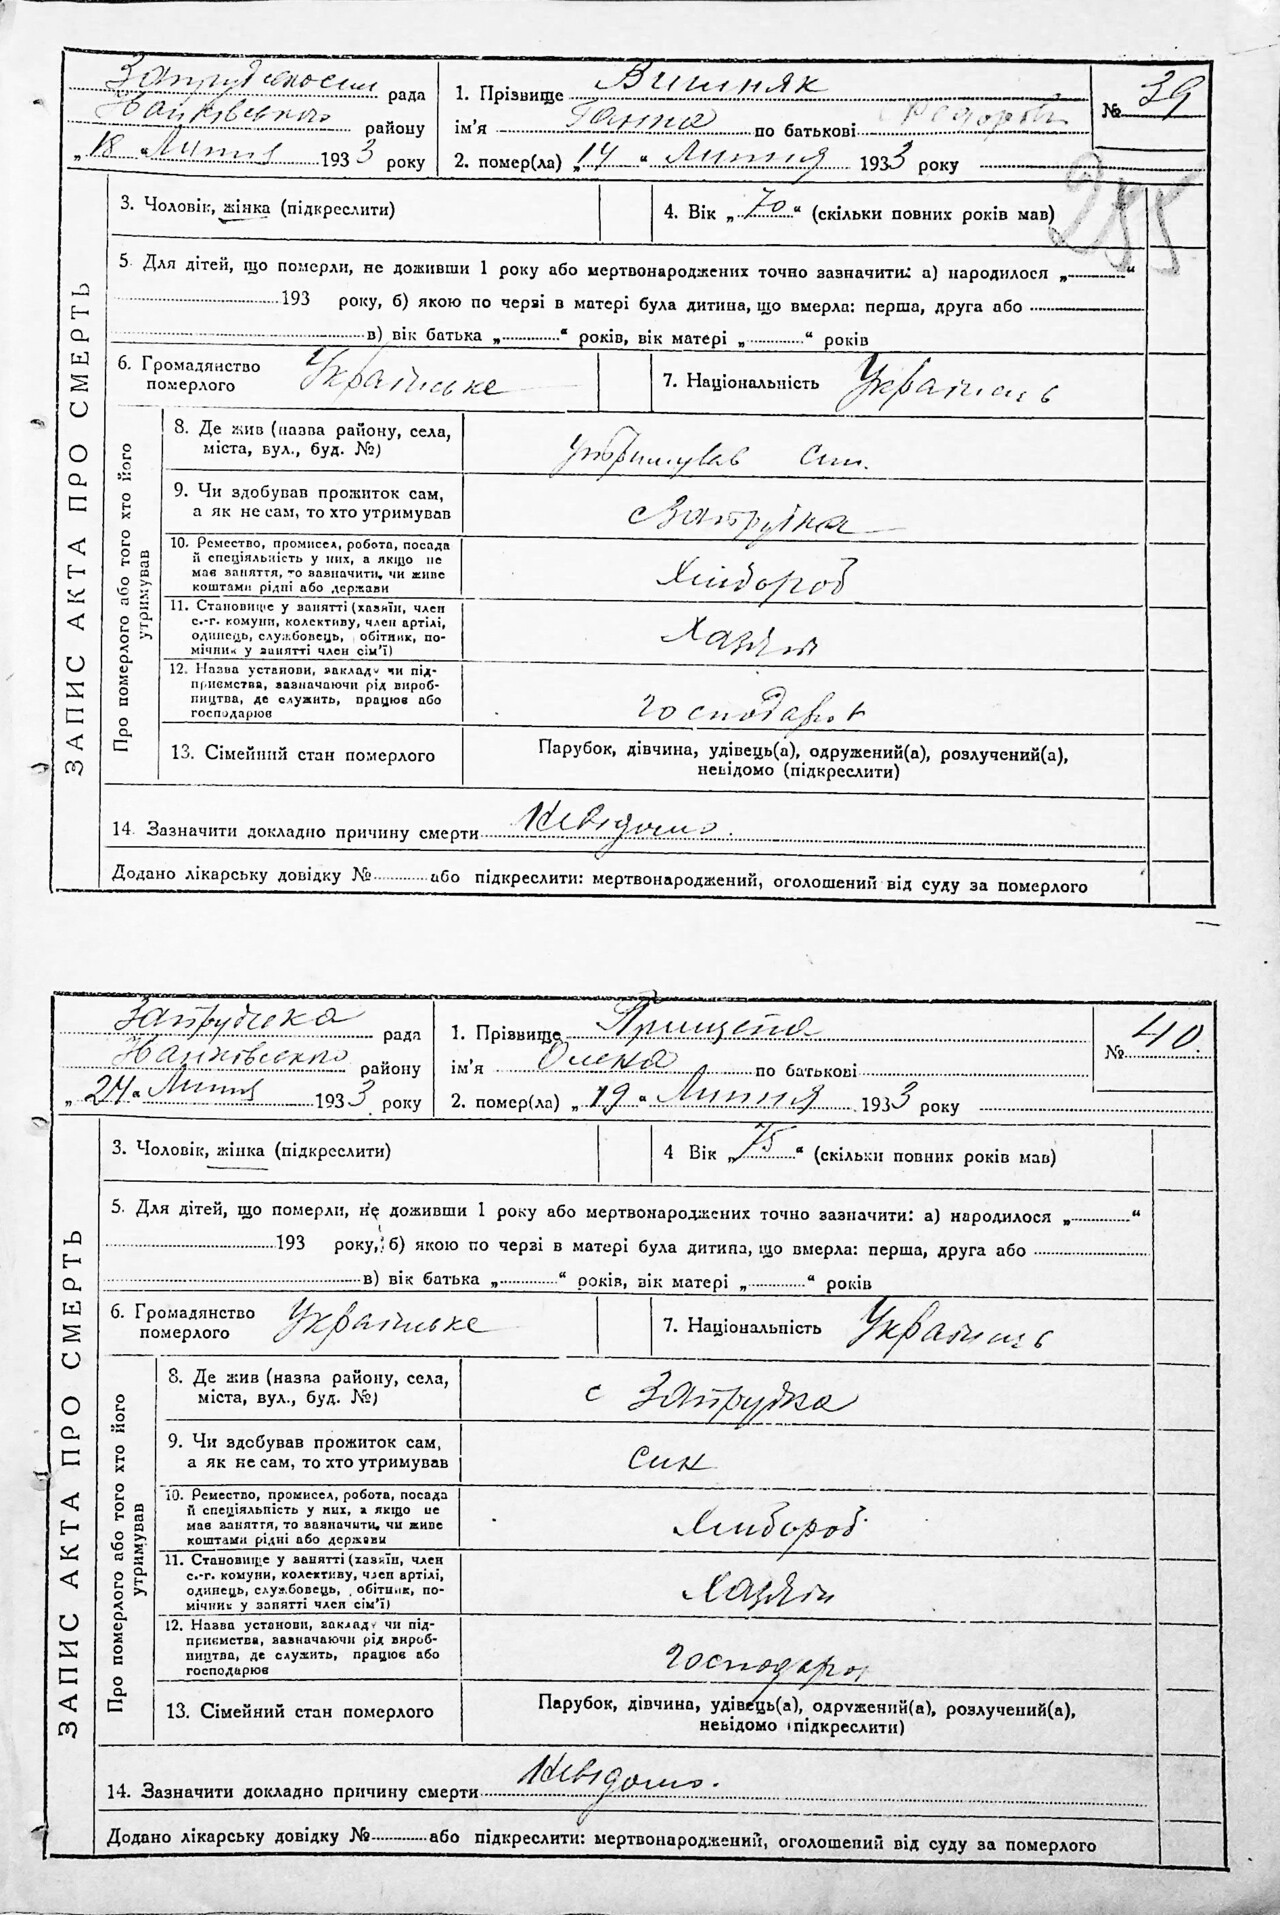 ЗАПИС АКТА ПРО СМЕРТЬ
рада
району
„18 " Липня 1933 року
1. Прізвище Вишняк
ім'я Ганна по батькові
2. помер(ла) „14 " Липня 1933 року
№ 39
255
3. Чоловік, жінка (підкреслити)
4. Вік „70" (скільки повних років мав)
5 Для дітей, що померли, не доживши 1 року або мертвонароджених точно зазначити: а) народилося „ "
193 року, б) якою по черзі в матері була дитина, що вмерла: перша, друга або
в) вік батька „ " років, вік матері „ " років
6. Громадянство
померлого
Українське
7. Національність Українець
Про померлого або того хто його
утримував
8. Де жив (назва району, села,
міста, вул., буд. №)
утримував син.
9. Чи здобував прожиток сам,
а як не сам, то хто утримував
с Запрудка
10. Ремество, промисел, робота, посада
й спеціяльність у них, а якщо не
має заняття, то зазначити, чи живе
коштами рідні або держави
Хлібороб
11. Становище у занятті (хазяїн, член
с.-г. комуни, колективу, член артілі,
одинець, службовець, обітник, по-
мічник у занятті член сім'ї)
Хазяїн
12. Назва установи, закладу чи під-
приємства, зазначаючи рід вироб-
ництва, де служить, працює або
господарює
13. Сімейний стан померлого
Парубок, дівчина, удівець(а), одружений(а), розлучений(а),
невідомо (підкреслити)
14. Зазначити докладно причину смерти Невідомо.
Додано лікарську довідку № або підкреслити: мертвонароджений, оголошений від суду за померлого
ЗАПИС АКТА ПРО СМЕРТЬ
Запрудська рада
району
„24 " Липня 1933 року
1. Прізвище Прищепа
ім'я Олена по батькові
2. помер(ла) „19 " Липня 1933 року
№ 40.
3. Чоловік, жінка (підкреслити)
4 Вік „75" (скільки повних років мав)
5. Для дітей, що померли, не доживши 1 року або мертвонароджених точно зазначити: а) народилося „ "
193 року, б) якою по черзі в матері була дитина, що вмерла: перша, друга або
в) вік батька „ " років, вік матері „ " років
6. Громадянство
померлого
Українське
7. Національність Українець
Про померлого або того хто його
утримував
8. Де жив (назва району, села,
міста, вул., буд. №)
с Запрудка
9. Чи здобував прожиток сам,
а як не сам, то хто утримував
син
10. Ремество, промисел, робота, посада
й спеціяльність у них, а якщо не
має заняття, то зазначити, чи живе
коштами рідні або держави
Хлібороб
11. Становище у занятті (хазяїн, член
с.-г. комуни, колективу, член артілі,
одинець, службовець, обітник, по-
мічник у занятті член сім'ї)
Хазяїн
12. Назва установи, закладу чи під-
приємства, зазначаючи рід вироб-
ництва, де служить, працює або
господарює
13. Сімейний стан померлого
Парубок, дівчина, удівець(а), одружений(а), розлучений(а),
невідомо підкреслити)
14. Зазначити докладно причину смерти Невідомо.
Додано лікарську довідку № або підкреслити: мертвонароджений, оголошений від суду за померлого